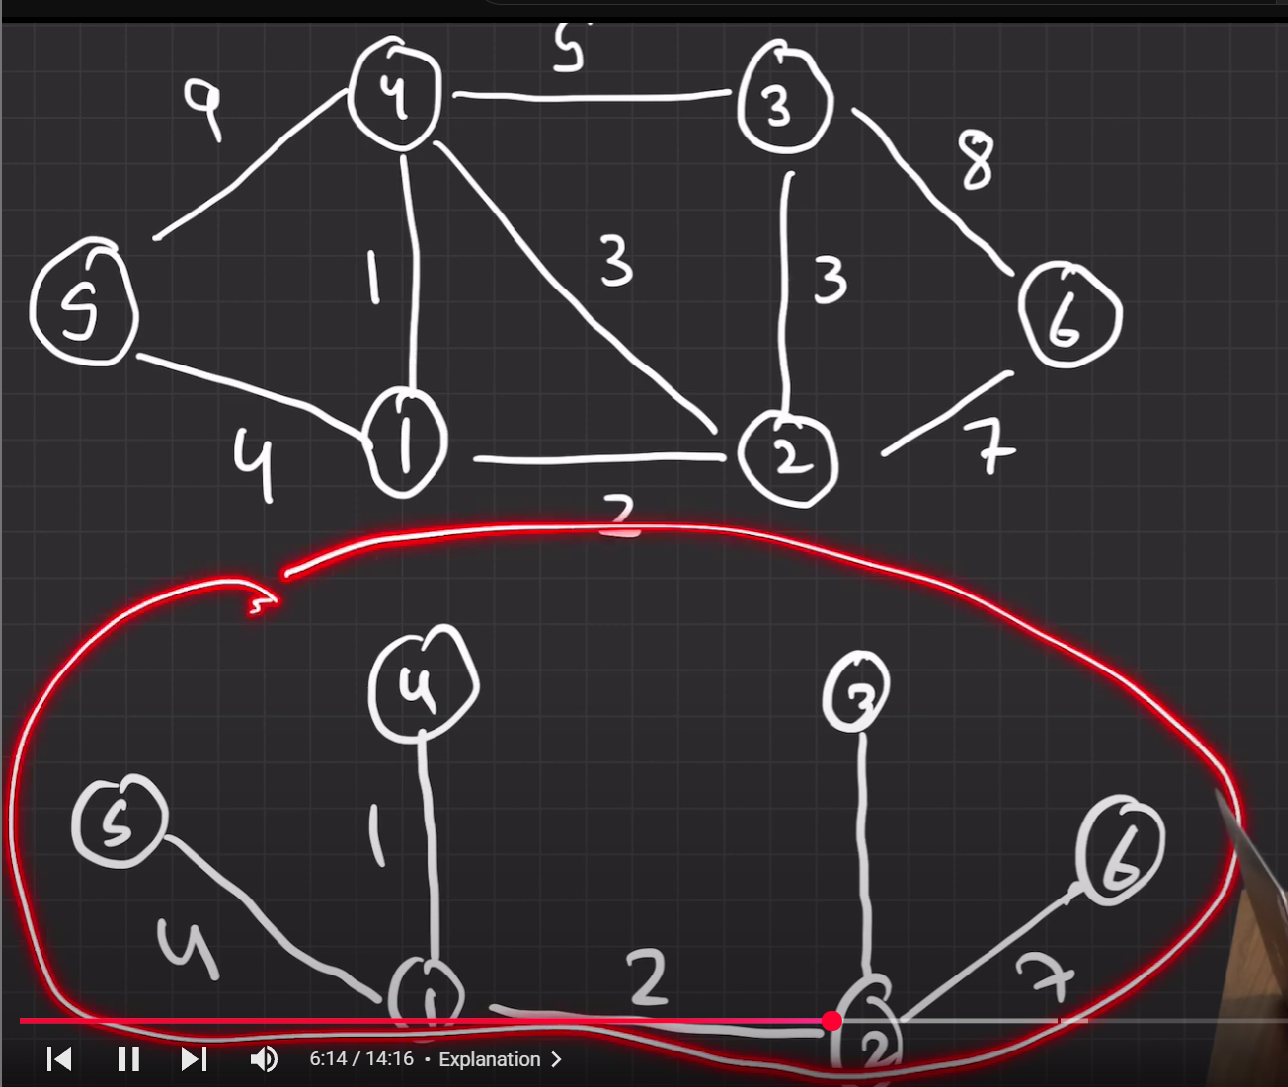 5
9
4
3
8
1
3
3
5
6
4
1
2
7
2
4
3
5
1
6
4
2
7
1
2
6:14 / 14:16 • Explanation